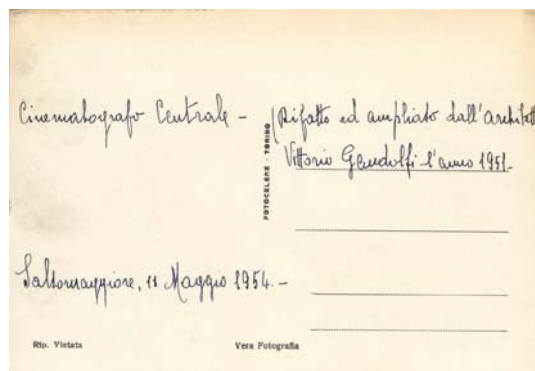 Cinematografo Centrale -
Rifatto ed ampliato dall'architett
Vittorio Gandolfi l'anno 1951.
FOTOCELERE - TORINO
Salsomaggiore, 11 Maggio 1954. -
Rip. Vietata
Vera Fotografia